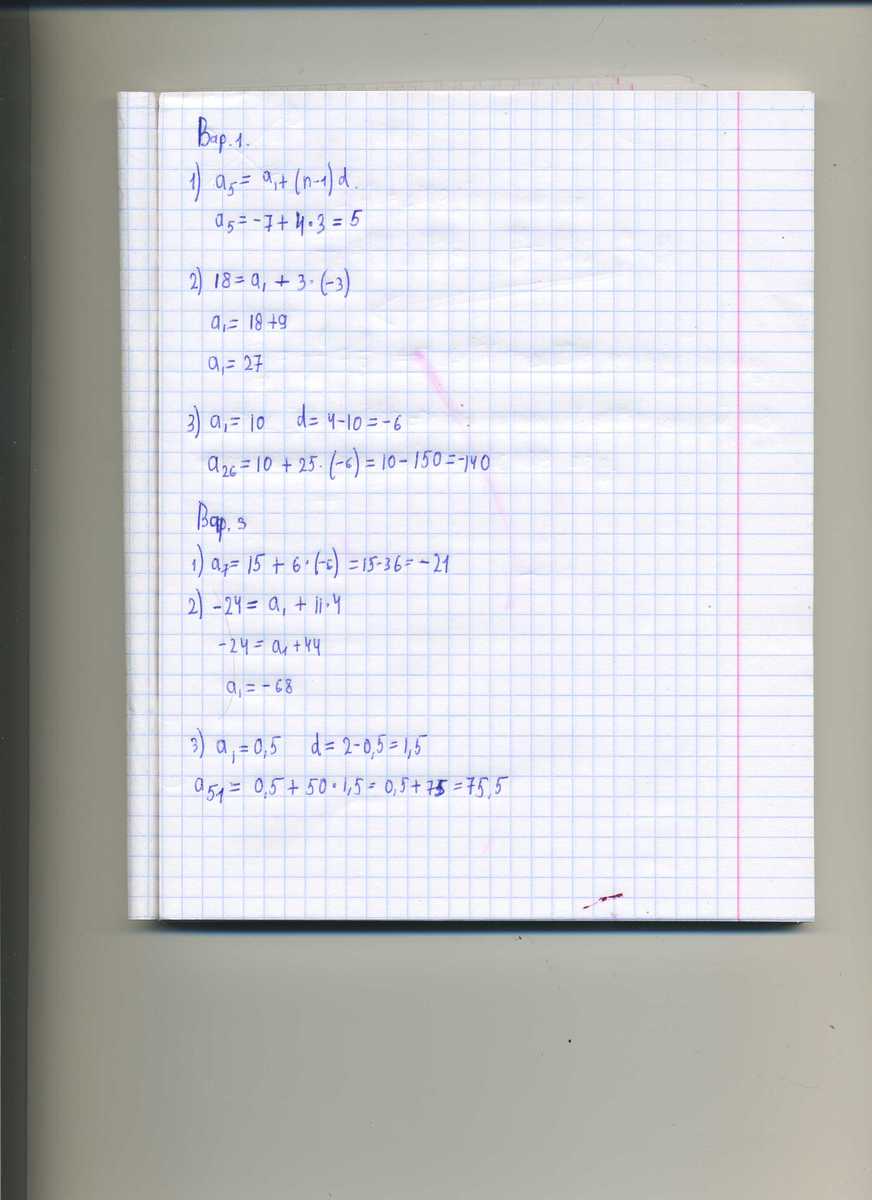 Вар. 1.
1) a₅ = a₁ + (n-1) d.
a₅ = -7 + 4·3 = 5
2) 18 = a₁ + 3·(-3)
a₁ = 18+9
a₁ = 27
3) a₁ = 10 d = 4-10 = -6
a₂₆ = 10 + 25·(-6) = 10 - 150 = -140
Вар. 3
1) a₇ = 15 + 6·(-6) = 15-36 = -21
2) -24 = a₁ + 11·4
-24 = a₁ + 44
a₁ = -68
3) a₁ = 0,5 d = 2-0,5 = 1,5
a₅₁ = 0,5 + 50·1,5 = 0,5 + 75 = 75,5